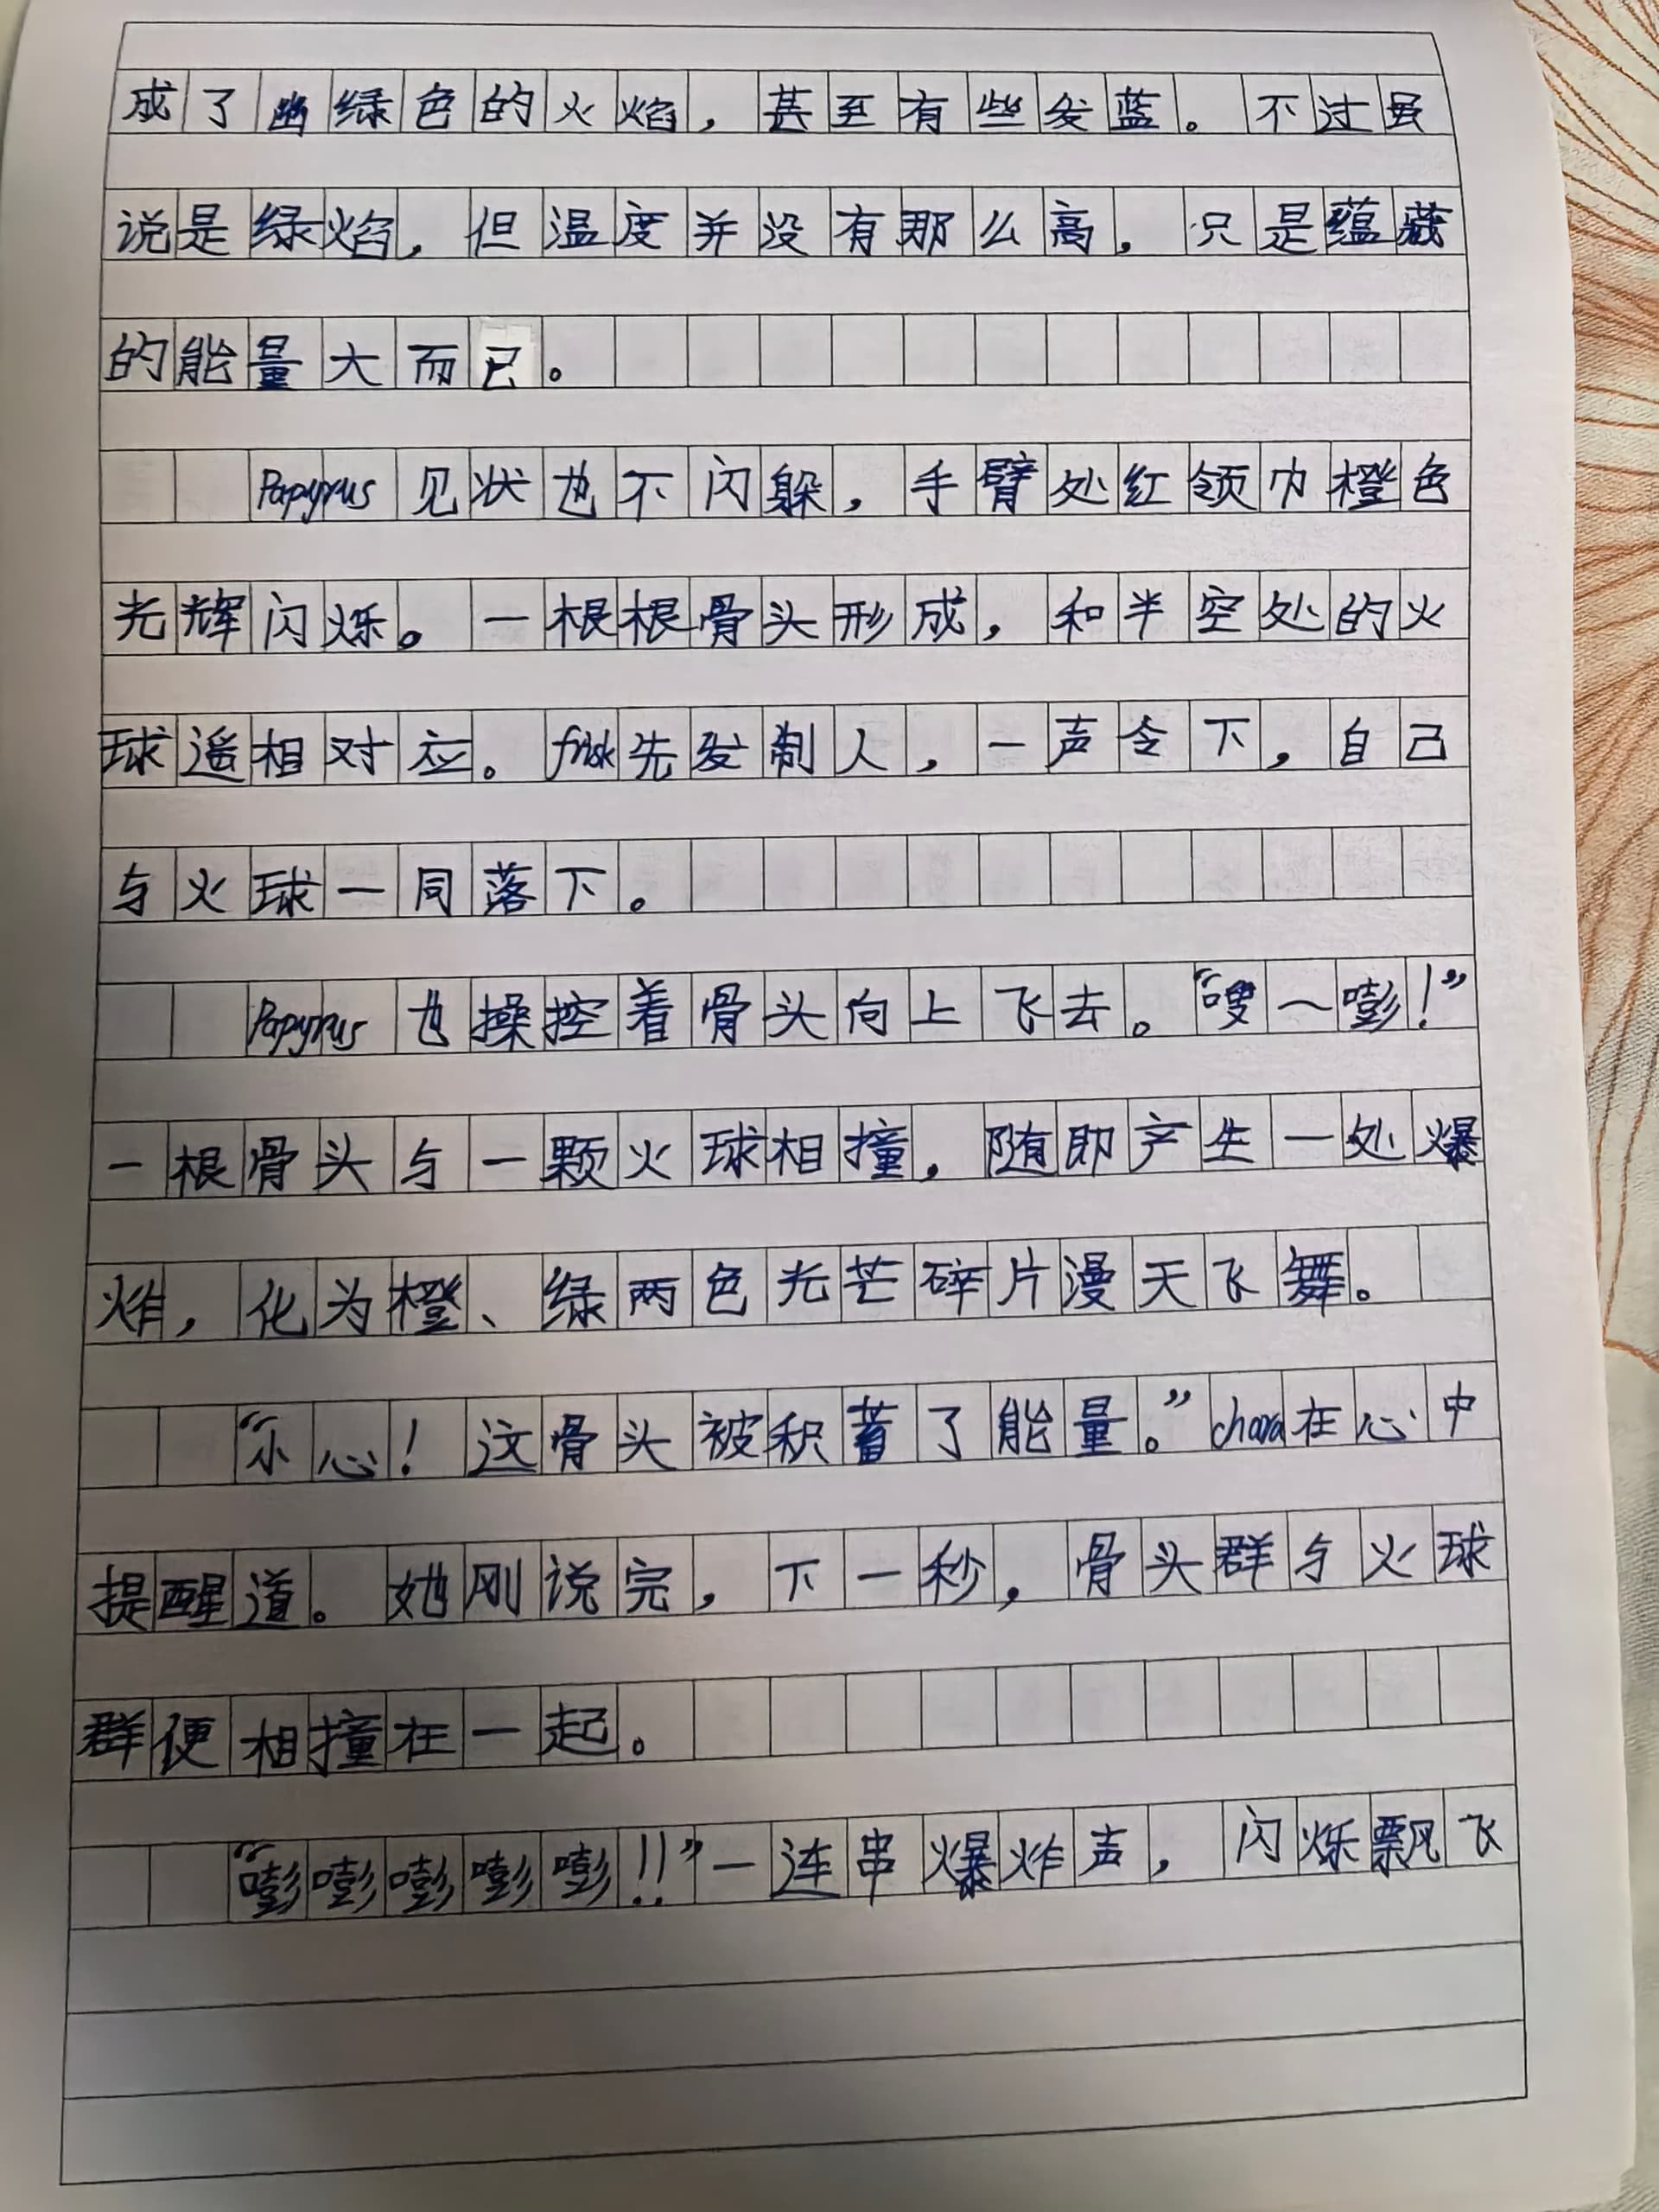 成了幽绿色的火焰，甚至有些发蓝。不过虽
说是绿焰，但温度并没有那么高，只是蕴藏
的能量大而已。
Papyrus见状也不闪躲，手臂处红领巾橙色
光辉闪烁。一根根骨头形成，和半空处的火
球遥相对应。frisk先发制人，一声令下，自己
与火球一同落下。
Papyrus也操控着骨头向上飞去。“嗖—嘭！”
一根骨头与一颗火球相撞，随即产生一处爆
炸，化为橙、绿两色光芒碎片漫天飞舞。
“小心！这骨头被积蓄了能量。”chara在心中
提醒道。她刚说完，下一秒，骨头群与火球
群便相撞在一起。
“嘭嘭嘭嘭嘭！！”一连串爆炸声，闪烁飘飞